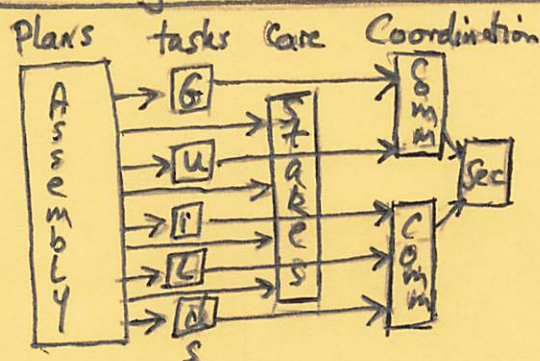 Plans tasks Care Coordination
Assembly
G
u
i
L
d
s
Comm
Comm
Sec